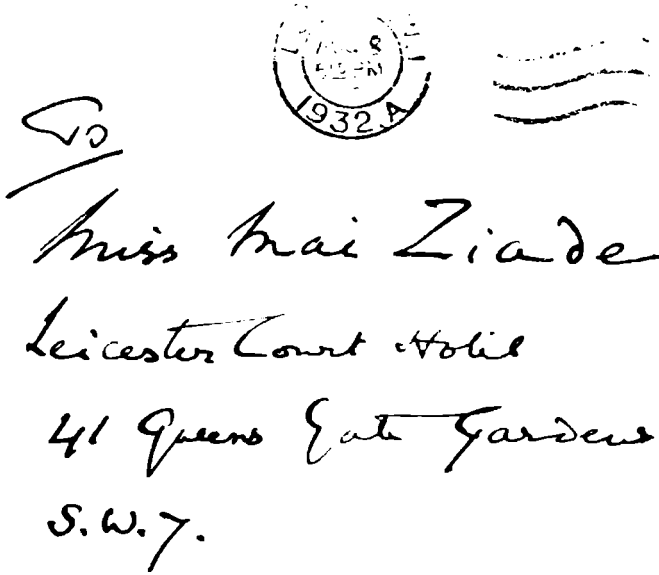 8
PM
1932.A
To
Miss Mai Ziade
Leicester Court Hotel
41 Queens Gate Gardens
S.W.7.